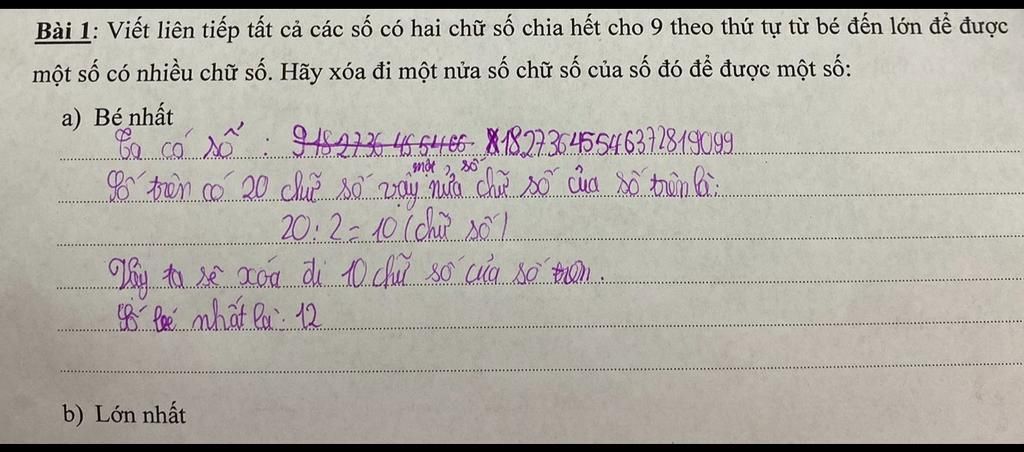 Bài 1: Viết liên tiếp tất cả các số có hai chữ số chia hết cho 9 theo thứ tự từ bé đến lớn để được
một số có nhiều chữ số. Hãy xóa đi một nửa số chữ số của số đó để được một số:
a) Bé nhất
Ta có số : 9182736455466 18273645546372819099
một số
Số trên có 20 chữ số vậy nửa chữ số của số trên là:
20 : 2 = 10 (chữ số)
Vậy ta sẽ xóa đi 10 chữ số của số trên.
Số bé nhất là: 12
b) Lớn nhất